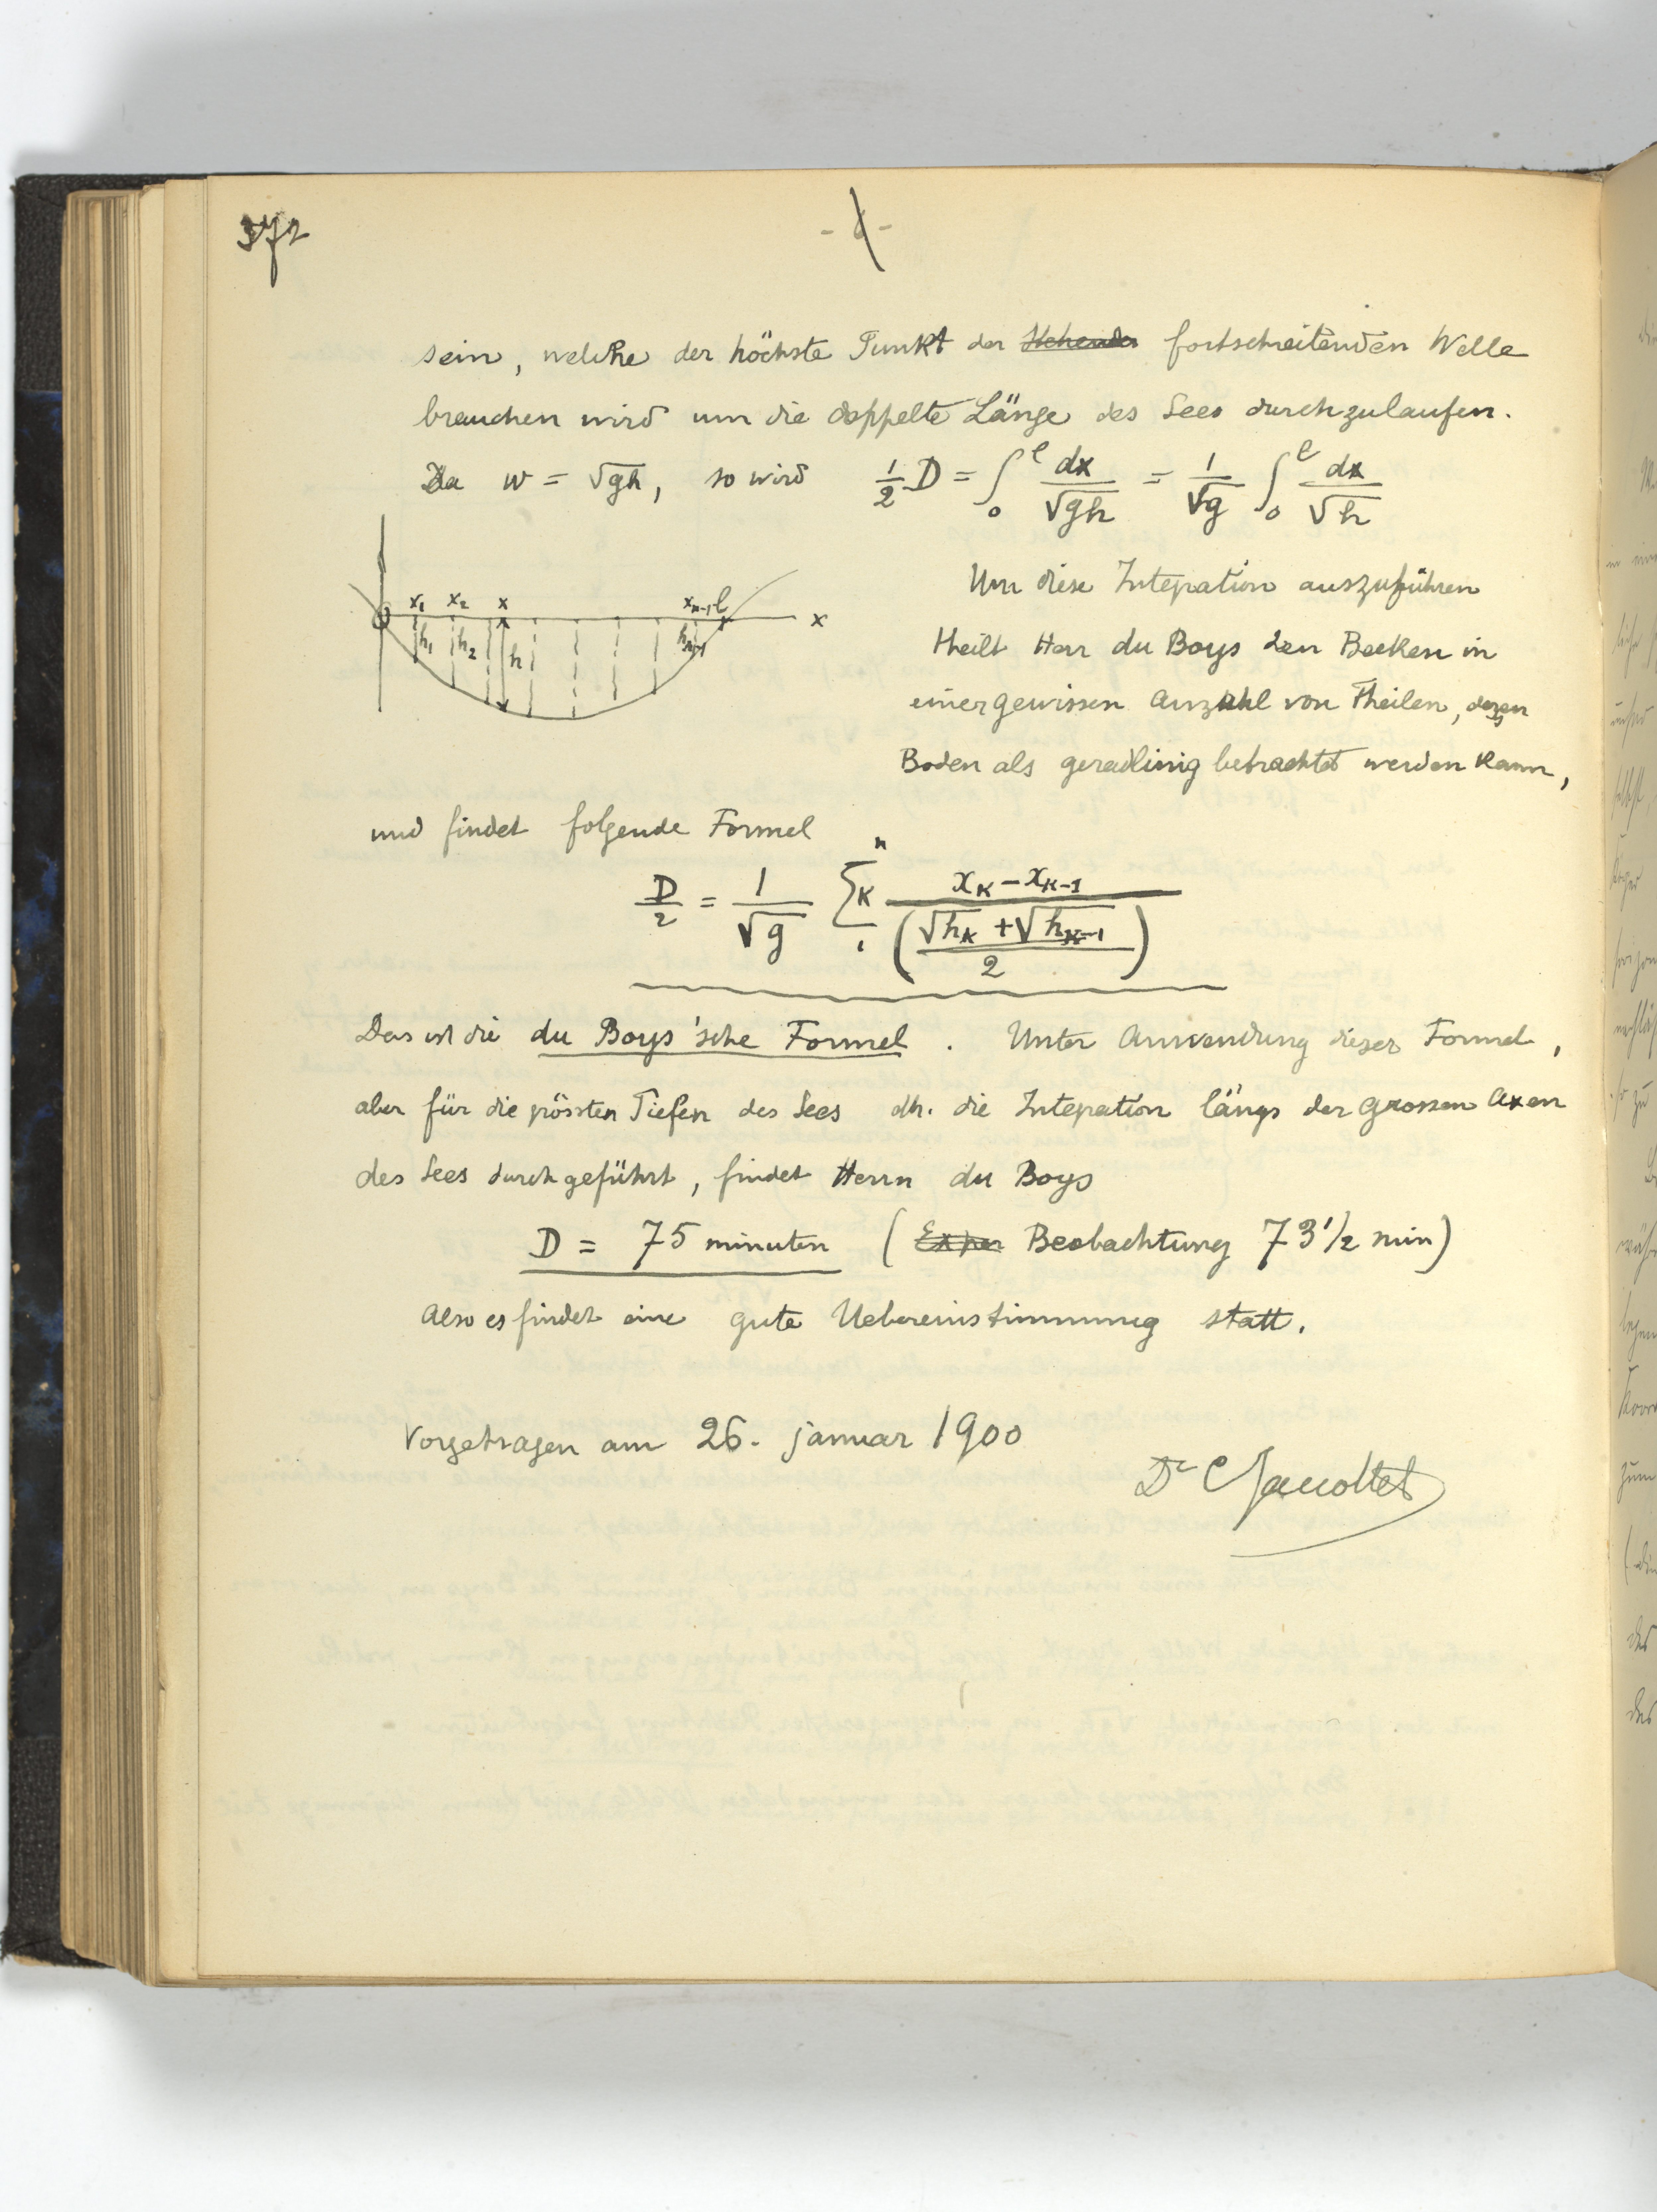 372
sein, welche der höchste Punkt der stehender fortschreitenden Welle
brauchen wird um die doppelte Länge des Sees durchzulaufen.
Da w = √gh, so wird ½ D = ∫₀ˡ dx/√gh = 1/√g ∫₀ˡ dx/√h
x₁ x₂ x xₙ₋₁ l x
h₁ h₂ h hₙ₋₁
Um diese Integration auszuführen
theilt Herr du Boys den Becken in
einer gewissen Anzahl von Theilen, deren
Boden als geradlinig betrachtet werden kann,
und findet folgende Formel
D/2 = 1/√g Σₖ₁ⁿ (xₖ − xₖ₋₁)/((√hₖ + √hₖ₋₁)/2)
Das ist die du Boys'sche Formel. Unter Anwendung dieser Formel,
aber für die grössten Tiefen des Sees dh. die Integration längs der grossen Axen
des Sees durchgeführt, findet Herrn du Boys
D = 75 minuten (Exper Beobachtung 73 1/2 min)
Also es findet eine gute Uebereinstimmung statt.
Vorgetragen am 26. januar 1900
Dr C Jacottet